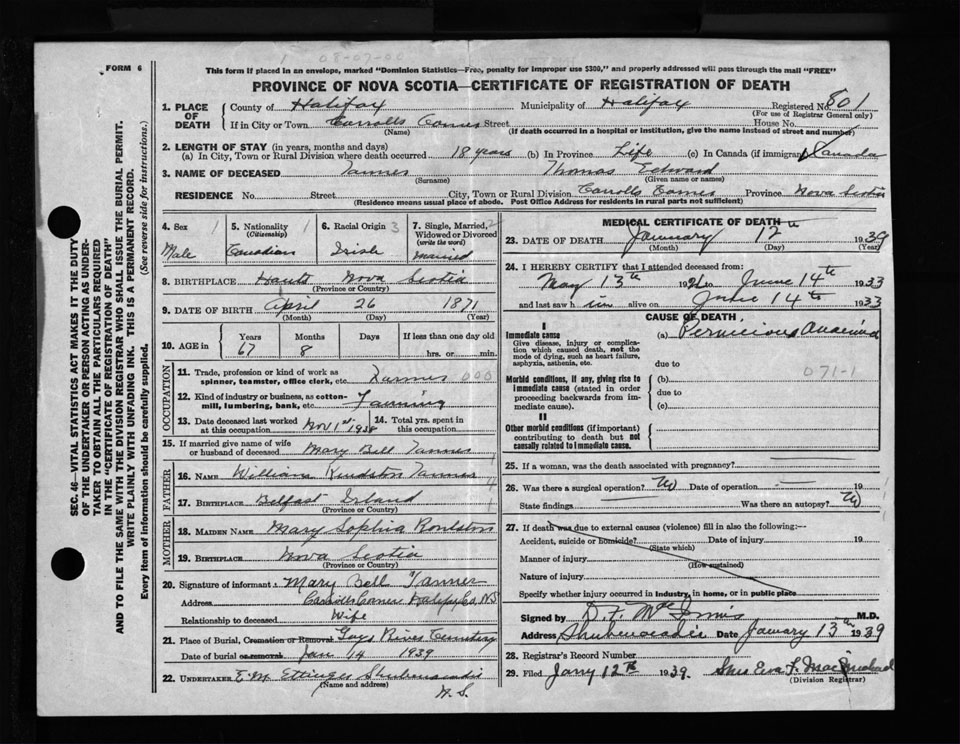 1 08-07-00
FORM 6
This form if placed in an envelope, marked "Dominion Statistics—Free, penalty for improper use $300," and properly addressed will pass through the mail "FREE"
PROVINCE OF NOVA SCOTIA—CERTIFICATE OF REGISTRATION OF DEATH
SEC. 46—VITAL STATISTICS ACT MAKES IT THE DUTY
OF THE UNDERTAKER OR PERSON ACTING AS UNDER-
TAKER TO OBTAIN ALL THE PARTICULARS REQUIRED
IN THE "CERTIFICATE OF REGISTRATION OF DEATH"
AND TO FILE THE SAME WITH THE DIVISION REGISTRAR WHO SHALL ISSUE THE BURIAL PERMIT.
WRITE PLAINLY WITH UNFADING INK. THIS IS A PERMANENT RECORD.
Every item of information should be carefully supplied. (See reverse side for instructions.)
1. PLACE OF DEATH County of Halifax Municipality of Halifax Registered No. 801
(For use of Registrar General only)
If in City or Town Carrolls Corner Street House No.
(Name) (If death occurred in a hospital or institution, give the name instead of street and number)
2. LENGTH OF STAY (in years, months and days)
(a) In City, Town or Rural Division where death occurred 18 years (b) In Province Life (c) In Canada (if immigrant) Canada
3. NAME OF DECEASED Tanner Thomas Edward
(Surname) (Given name or names)
RESIDENCE No. Street City, Town or Rural Division Carrolls Corner Province Nova Scotia
(Residence means usual place of abode. Post Office Address for residents in rural parts not sufficient)
4. Sex 1 5. Nationality 1 6. Racial Origin 3 7. Single, Married, 2
(Citizenship) Widowed or Divorced
(write the word)
Male Canadian Irish Married
8. BIRTHPLACE Hants Nova Scotia
(Province or Country)
9. DATE OF BIRTH April 26 1871
(Month) (Day) (Year)
10. AGE in Years Months Days If less than one day old
67 8 hrs. or min.
OCCUPATION
11. Trade, profession or kind of work as
spinner, teamster, office clerk, etc. Tanner 000
12. Kind of industry or business, as cotton-
mill, lumbering, bank, etc. Tanning
13. Date deceased last worked
at this occupation Nov 1st 1938 14. Total yrs. spent in
this occupation
15. If married give name of wife
or husband of deceased Mary Bell Tanner
FATHER
16. NAME William Tanner 4
17. BIRTHPLACE Belfast Irland
(Province or Country)
MOTHER
18. MAIDEN NAME Mary Sophia
19. BIRTHPLACE Nova Scotia 1
(Province or Country)
20. Signature of informant Mary Bell Tanner
Address Carrolls Corner Halifax Co. N.S
Relationship to deceased Wife
21. Place of Burial, Cremation or Removal Gays River Cemetery
Date of burial or removal Jan 14 1939
22. UNDERTAKER E.M. Ettinger Shubenacadie
(Name and address)
N.S.
MEDICAL CERTIFICATE OF DEATH
23. DATE OF DEATH January 12th 1939
(Month) (Day) (Year)
24. I HEREBY CERTIFY that I attended deceased from:
May 13th 19 to June 14th 1933
and last saw him alive on June 14th 1933
CAUSE OF DEATH
I
Immediate cause
Give disease, injury or complica-
tion which caused death, not the
mode of dying, such as heart failure,
asphyxia, asthenia, etc.
(a) Pernicious Anaemia
due to
071-1
Morbid conditions, if any, giving rise to
immediate cause (stated in order
proceeding backwards from im-
mediate cause).
(b)
due to
(c)
II
Other morbid conditions (if important)
contributing to death but not
causally related to immediate cause.
25. If a woman, was the death associated with pregnancy?
26. Was there a surgical operation? No Date of operation — 19
State findings — Was there an autopsy? No
27. If death was due to external causes (violence) fill in also the following:—
Accident, suicide or homicide? Date of injury 19
(State which)
Manner of injury
(How sustained)
Nature of injury
Specify whether injury occurred in Industry, in home, or in public place
Signed by D. F. McInnis M.D.
Address Shubenacadie Date January 13th 1939
28. Registrar's Record Number
29. Filed Jany 12th 1939. Mrs Eva F. MacMichael
(Division Registrar)